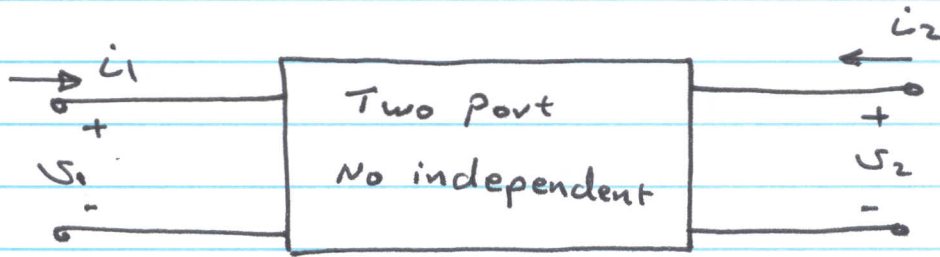 i1
i2
Two port
+
+
No independent
υ1
υ2
-
-